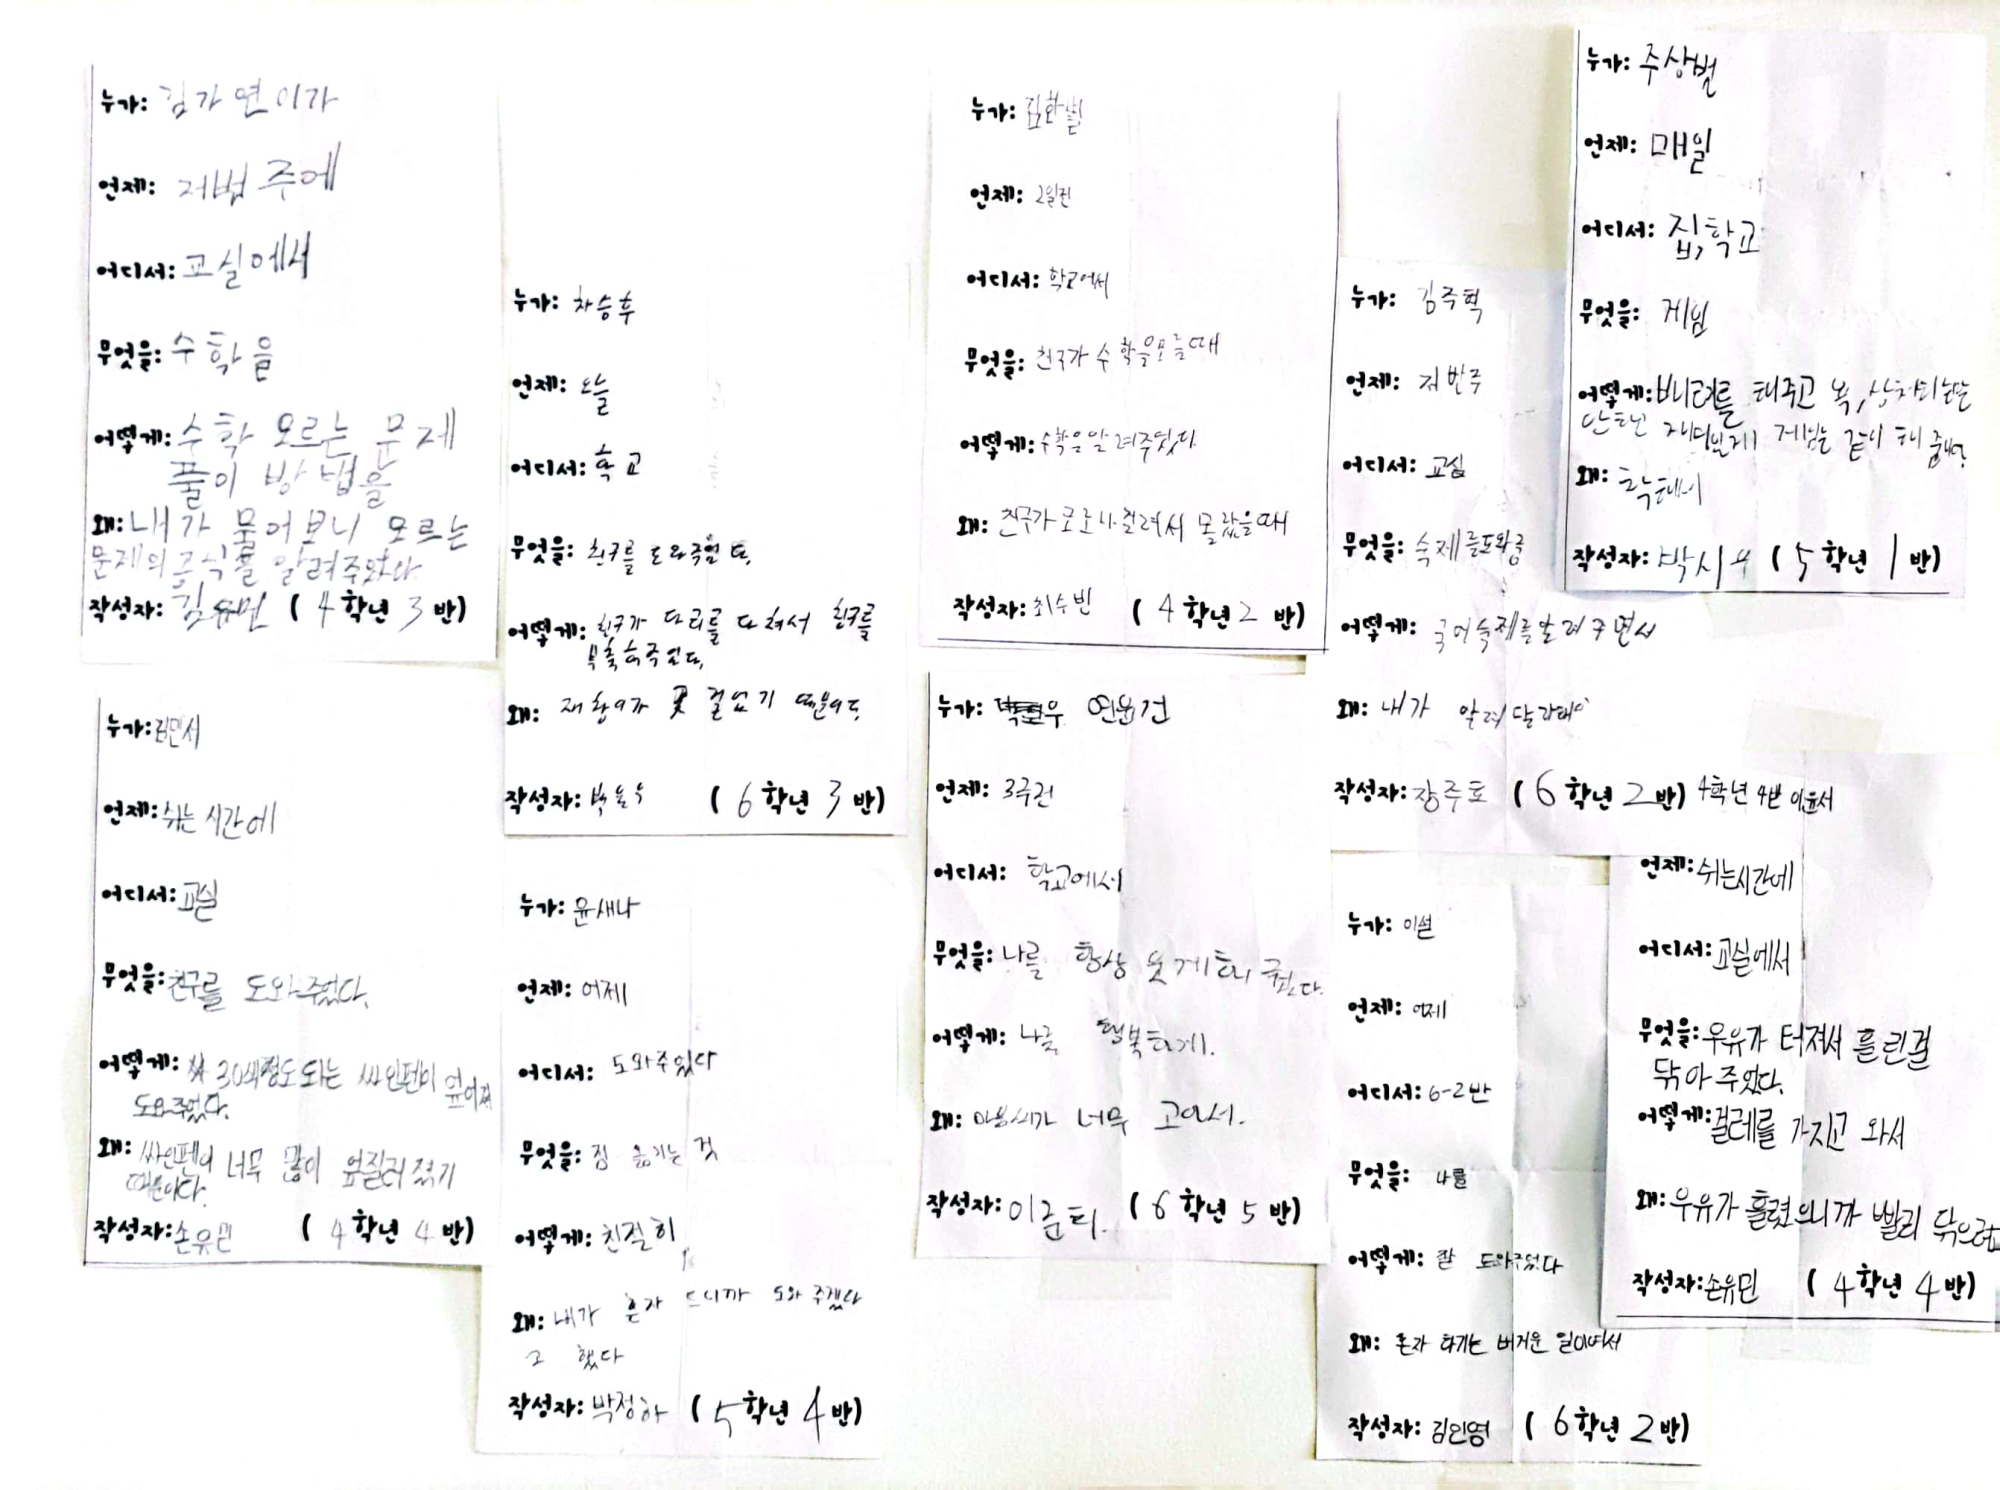 누가: 김가연이가
언제: 저번 주에
어디서: 교실에서
무엇을: 수학을
어떻게: 수학 모르는 문제
풀이 방법을
왜: 내가 물어보니 모르는
문제의 공식를 알려주었다
작성자: 김유민 (4학년 3반)
누가: 김민서
언제: 쉬는 시간에
어디서: 교실
무엇을: 친구를 도와주었다.
어떻게: 30색정도 되는 싸인펜이 엎어져
도와주었다.
왜: 싸인펜이 너무 많이 엎질러졌기
때문이다.
작성자: 손유민 (4학년 4반)
누가: 차승후
언제: 오늘
어디서: 학교
무엇을: 친구를 도와주었다.
어떻게: 친구가 다리를 다쳐서 친구를
부축해주었다.
왜: 못 걸었기 때문이다.
작성자: (6학년 3반)
누가: 윤새나
언제: 어제
어디서: 도와주었다
무엇을: 짐 옮기는 것
어떻게: 친절히
왜: 내가 혼자 드니까 도와 주겠다
고 했다
작성자: 박정하 (5학년 4반)
누가: 김환별
언제: 2일전
어디서: 학교에서
무엇을: 친구가 수학을모를때
어떻게: 수학을알려주었다
왜: 친구가 코로나 걸려서 몰랐을때
작성자: 최수빈 (4학년 2반)
누가: 연윤건
언제: 3주전
어디서: 학교에서
무엇을: 나를 항상 웃게해줬다.
어떻게: 나를 행복하게.
왜: 마음씨가 너무 고아서.
작성자: 이준희. (6학년 5반)
누가: 김주혁
언제: 저번주
어디서: 교실
무엇을: 숙제를도와줌
어떻게: 국어숙제를알려주면서
왜: 내가 알려달라해서
작성자: 장주호 (6학년 2반) 4학년 4반 이윤서
누가: 이설
언제: 어제
어디서: 6-2반
무엇을: 나를
어떻게: 잘 도와주었다
왜: 혼자 하기는 버거운 일이여서
작성자: 김인영 (6학년 2반)
누가: 주상별
언제: 매일
어디서: 집,학교
무엇을: 게임
어떻게: 배려를 해주고 욕,상처되는말
안하고 게임을 같이 해 줌
왜: 착해서
작성자: 박시우 (5학년 1반)
언제: 쉬는시간에
어디서: 교실에서
무엇을: 우유가 터져서 흘린걸
닦아 주었다.
어떻게: 걸레를 가지고 와서
왜: 우유가 흘렸으니까 빨리 닦으려고
작성자: 손유민 (4학년 4반)